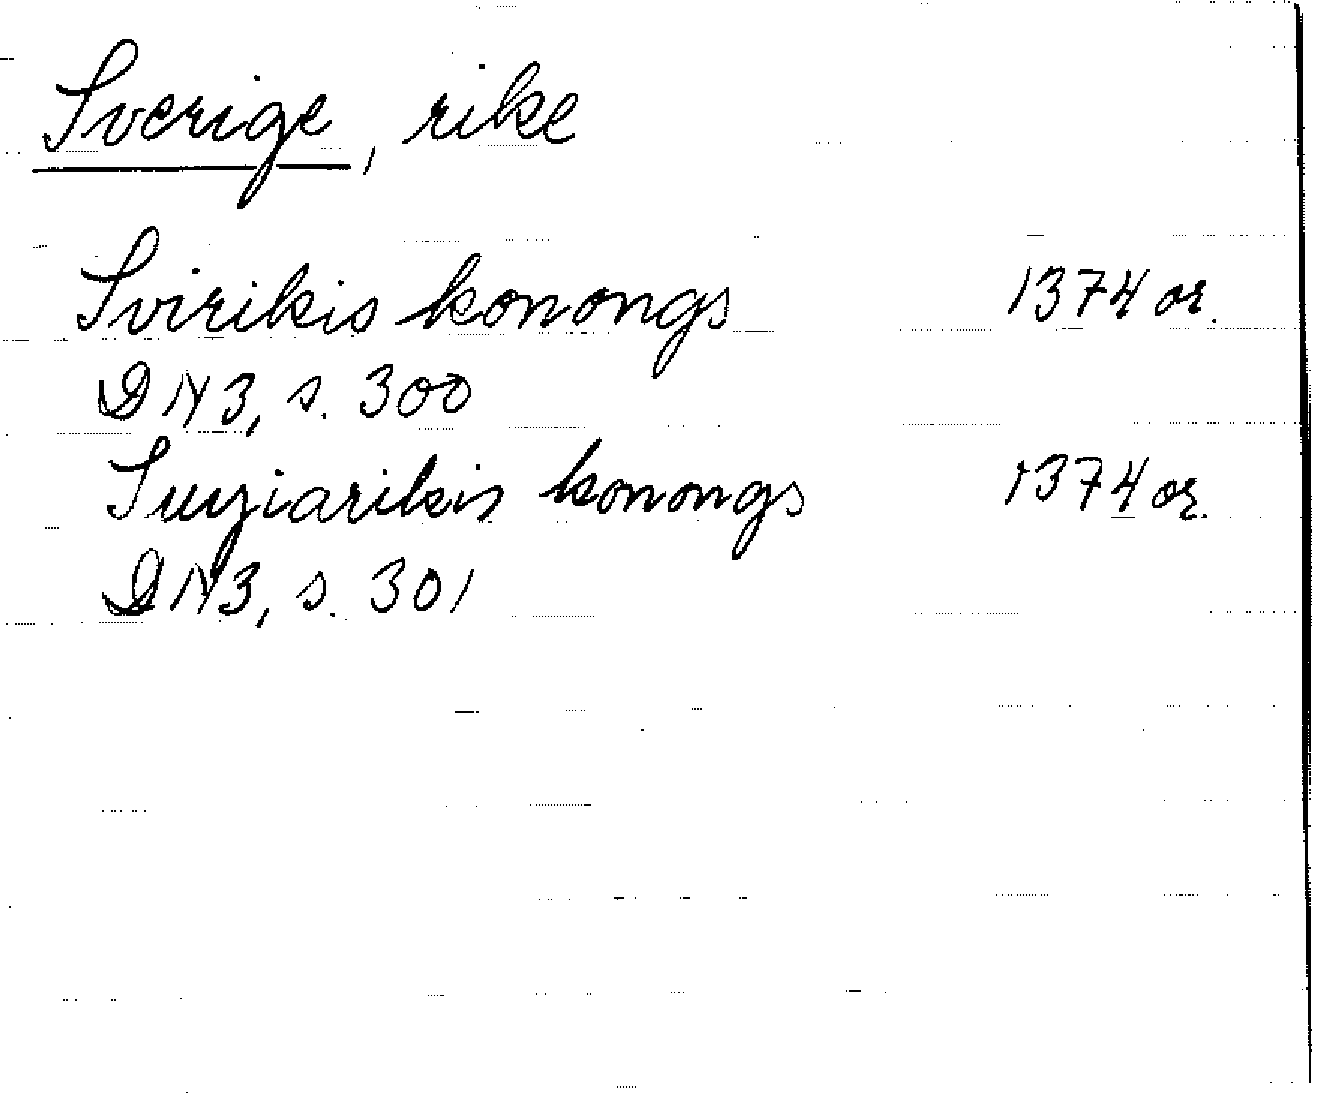 Sverige, rike
Svirikis konongs 1374 or.
DN3, s. 300
Suyiarikis konongs 1374 or.
DN3, s. 301